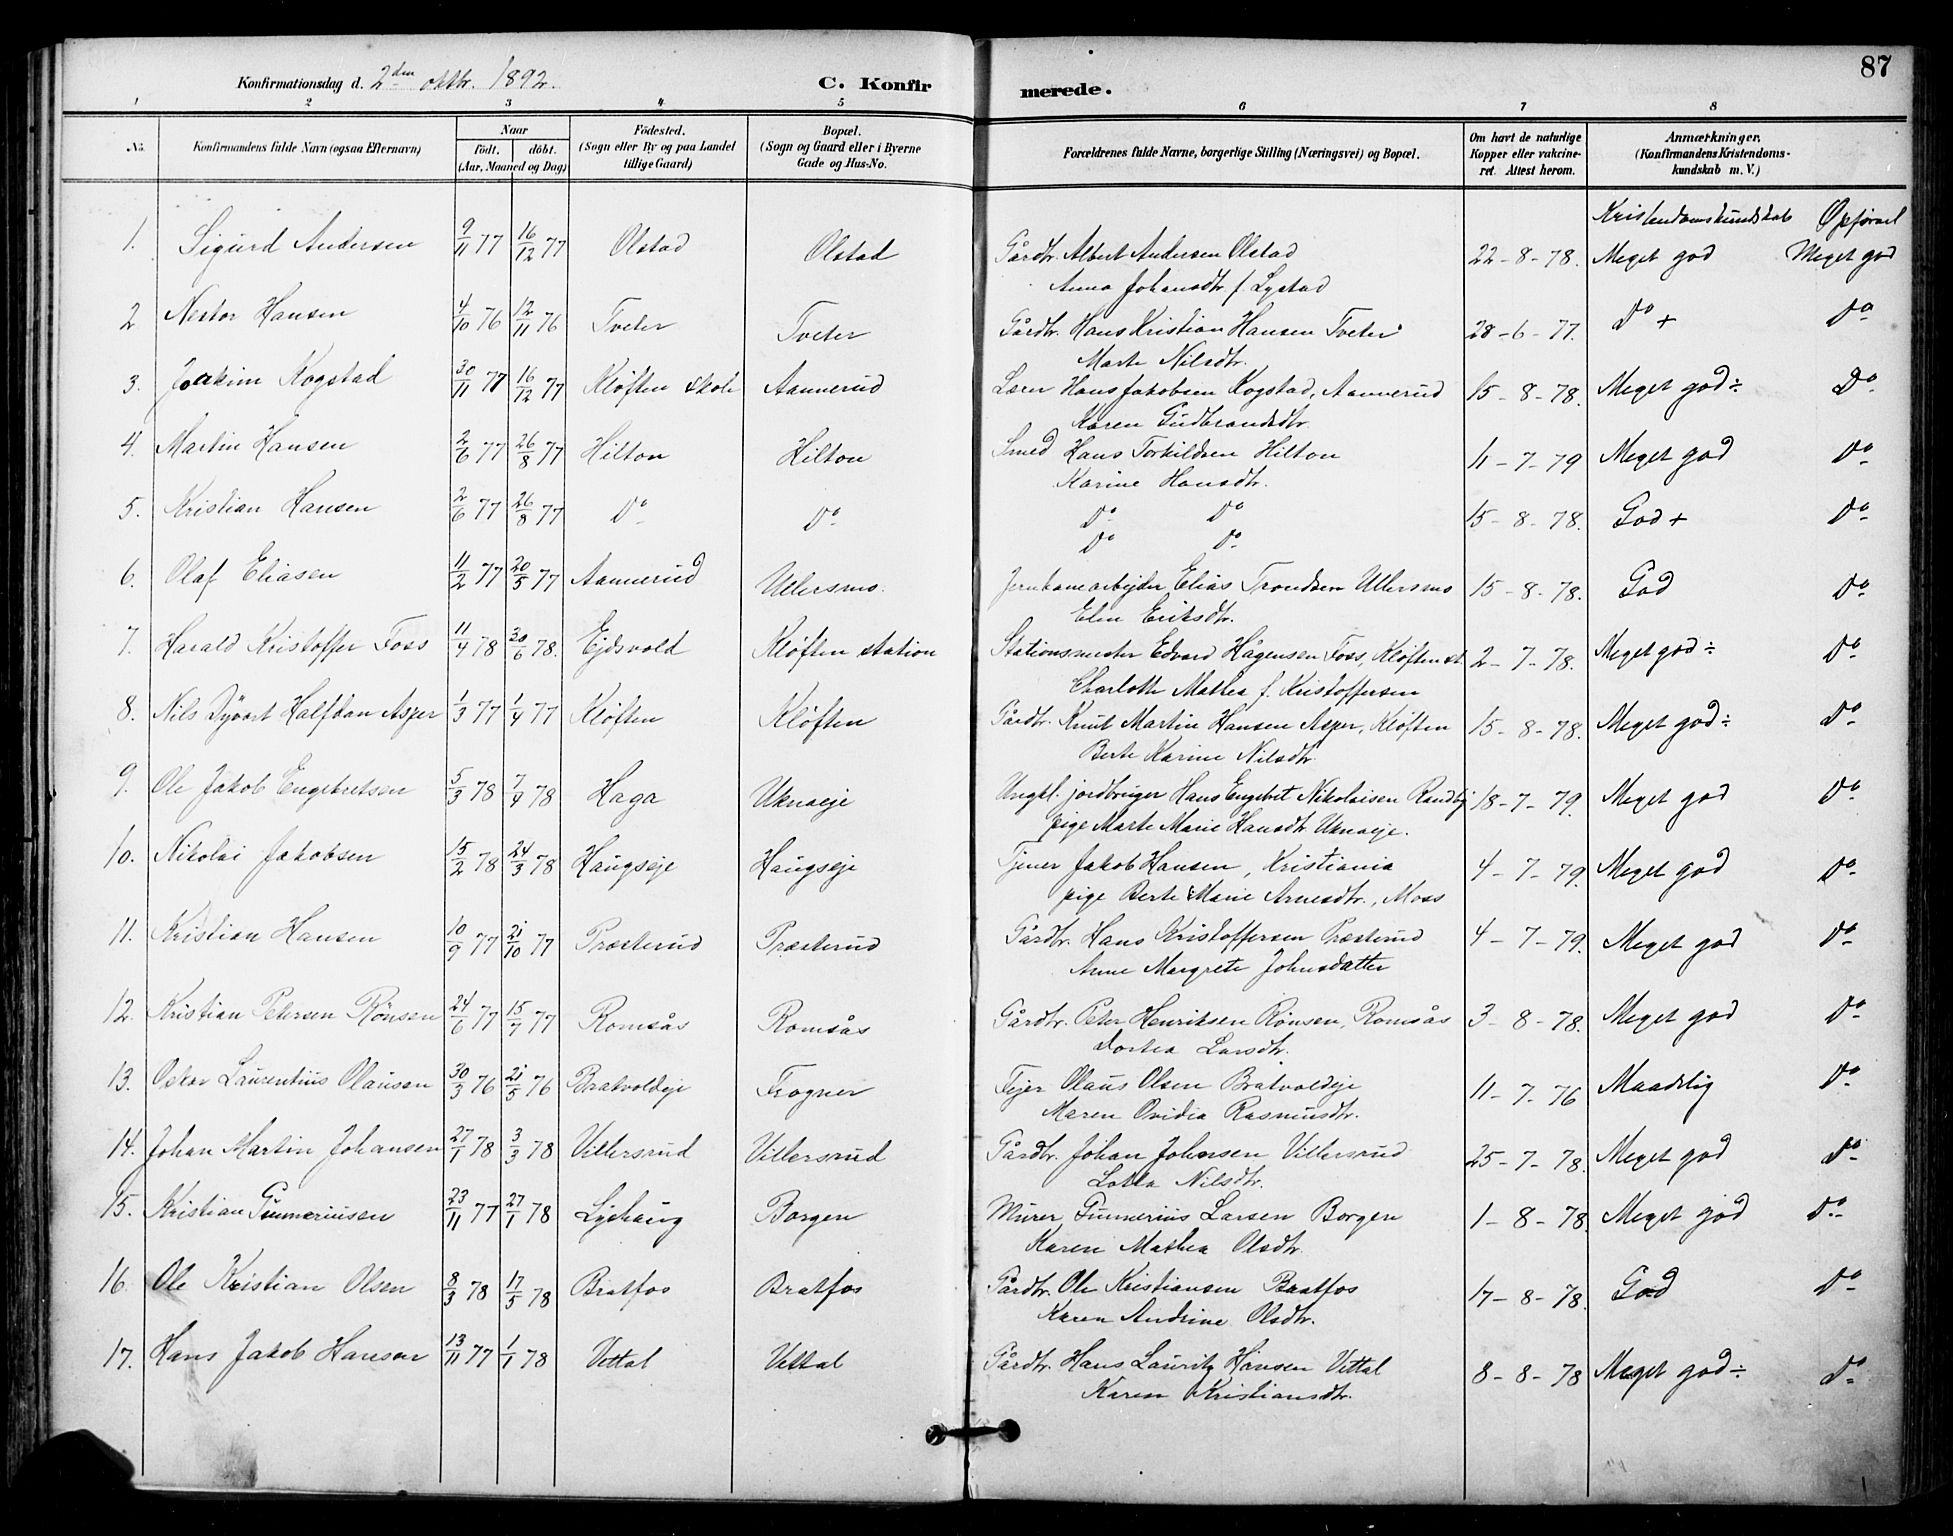 87
Konfirmationsdag d. 2den oktbr. 1892.
C. Konfirmerede.
1 2 3 4 5 6 7 8
No. Konfirmandens fulde Navn (ogsaa Efternavn) Naar födt. döbt. (Aar, Maaned og Dag) Födested. (Sogn eller By og paa Landet tillige Gaard) Bopæl. (Sogn og Gaard eller i Byerne Gade og Hus-No. Forældrenes fulde Navne, borgerlige Stilling (Næringsvei) og Bopæl. Om havt de naturlige Kopper eller vakcineret. Attest herom. Anmærkninger. (Konfirmandens Kristendomskundskab m. V.)
Kristendomskundskab Opførsel
1. Sigurd Andersen 9/11 77 16/12 77 Olstad Olstad Gårdbr. Albert Andersen Olstad 22-8-78. Meget god Meget god
Anna Johansdtr. f. Lystad
2 Nestor Hansen 4/10 76 12/11 76 Tveter Tveter Gårdbr. Hans Kristian Hansen Tveter 28-6-77. Do + Do
Marte Nilsdtr.
3. Joakim Kogstad 30/11 77 16/12 77 Kløften skole Aannerud Lærer Hans Jakobsen Kogstad, Aannerud 15-8-78. Meget god ÷ Do
Karen Gudbrandsdtr.
4. Martin Hansen 2/6 77 26/8 77 Hilton Hilton Smed Hans Torkildsen Hilton 11-7-79 Meget god Do
Karine Hansdtr.
5. Kristian Hansen 2/6 77 26/8 77 Do Do Do Do 15-8-78. God + Do
Do Do
6. Olaf Eliasen 11/2 77 20/5 77 Aannerud Ullersmo. Jernbanearbejder Elias Trondsen Ullersmo 15-8-78. God Do
Elen Eriksdtr.
7. Harald Kristoffer Foss 11/4 78 30/6 78. Ejdsvold Kløften station Stationsmester Edvard Hågensen Foss, Kløften st. 2-7-78. Meget god ÷ Do
Charlotte Mathea f. Kristoffersen
8. Nils Dyvart Halfdan Asper 1/3 77 1/4 77 Kløften Kløften Gårdbr. Knut Martin Hansen Asper, Kløften 15-8-78. Meget god ÷ Do
Berte Karine Nilsdtr.
9. Ole Jakob Engebretsen 5/3 78 7/4 78 Haga Uknaeje Ungkl. jordbruger Hans Engebret Nikolaisen Randby 18-7-79. Meget god Do
pige Marte Marie Hansdtr. Uknaeje.
10. Nikolai Jakobsen 15/2 78 24/3 78 Haugseje Haugseje Tjener Jakob Hansen, Kristiania 4-7-79. Meget god Do
pige Berte Marie Arnesdtr., Moss
11. Kristian Hansen 10/9 77 21/10 77 Præsterud Præsterud Gårdbr. Hans Kristoffersen Præsterud 4-7-79. Meget god Do
Anne Margrete Johnsdatter
12. Kristian Petersen Rønsen 24/6 77 15/7 77 Romsås Romsås Gårdbr. Peter Henriksen Rønsen, Romsås 3-8-78. Meget god Do
Dortea Larsdtr.
13. Oskar Laurentius Olausen 30/3 76 21/5 76 Bratvoldeje Frogner Fejer Olaus Olsen Bratvoldeje 11-7-76 Maadelig Do
Maren Ovidia Rasmusdtr.
14. Johan Martin Johansen 27/1 78 3/3 78 Villersrud Villersrud Gårdbr. Johan Johnsen Villersrud 25-7-78. Meget god Do
Lotta Nilsdtr.
15. Kristian Gunneriusen 23/11 77 27/1 78 Lyshaug Borgen Murer Gunnerius Larsen Borgen 1-8-78 Meget god Do
Karen Mathea Olsdtr.
16. Ole Kristian Olsen 8/3 78 17/5 78 Bratfos Bratfos Gårdbr. Ole Kristiansen Bratfos 17-8-78. God Do
Karen Andrine Olsdtr.
17. Hans Jakob Hansen 13/11 77 1/1 78 Vettal Vettal Gårdbr. Hans Lauritz Hansen Vettal 8-8-78 Meget god ÷ Do
Karen Kristiansdtr.